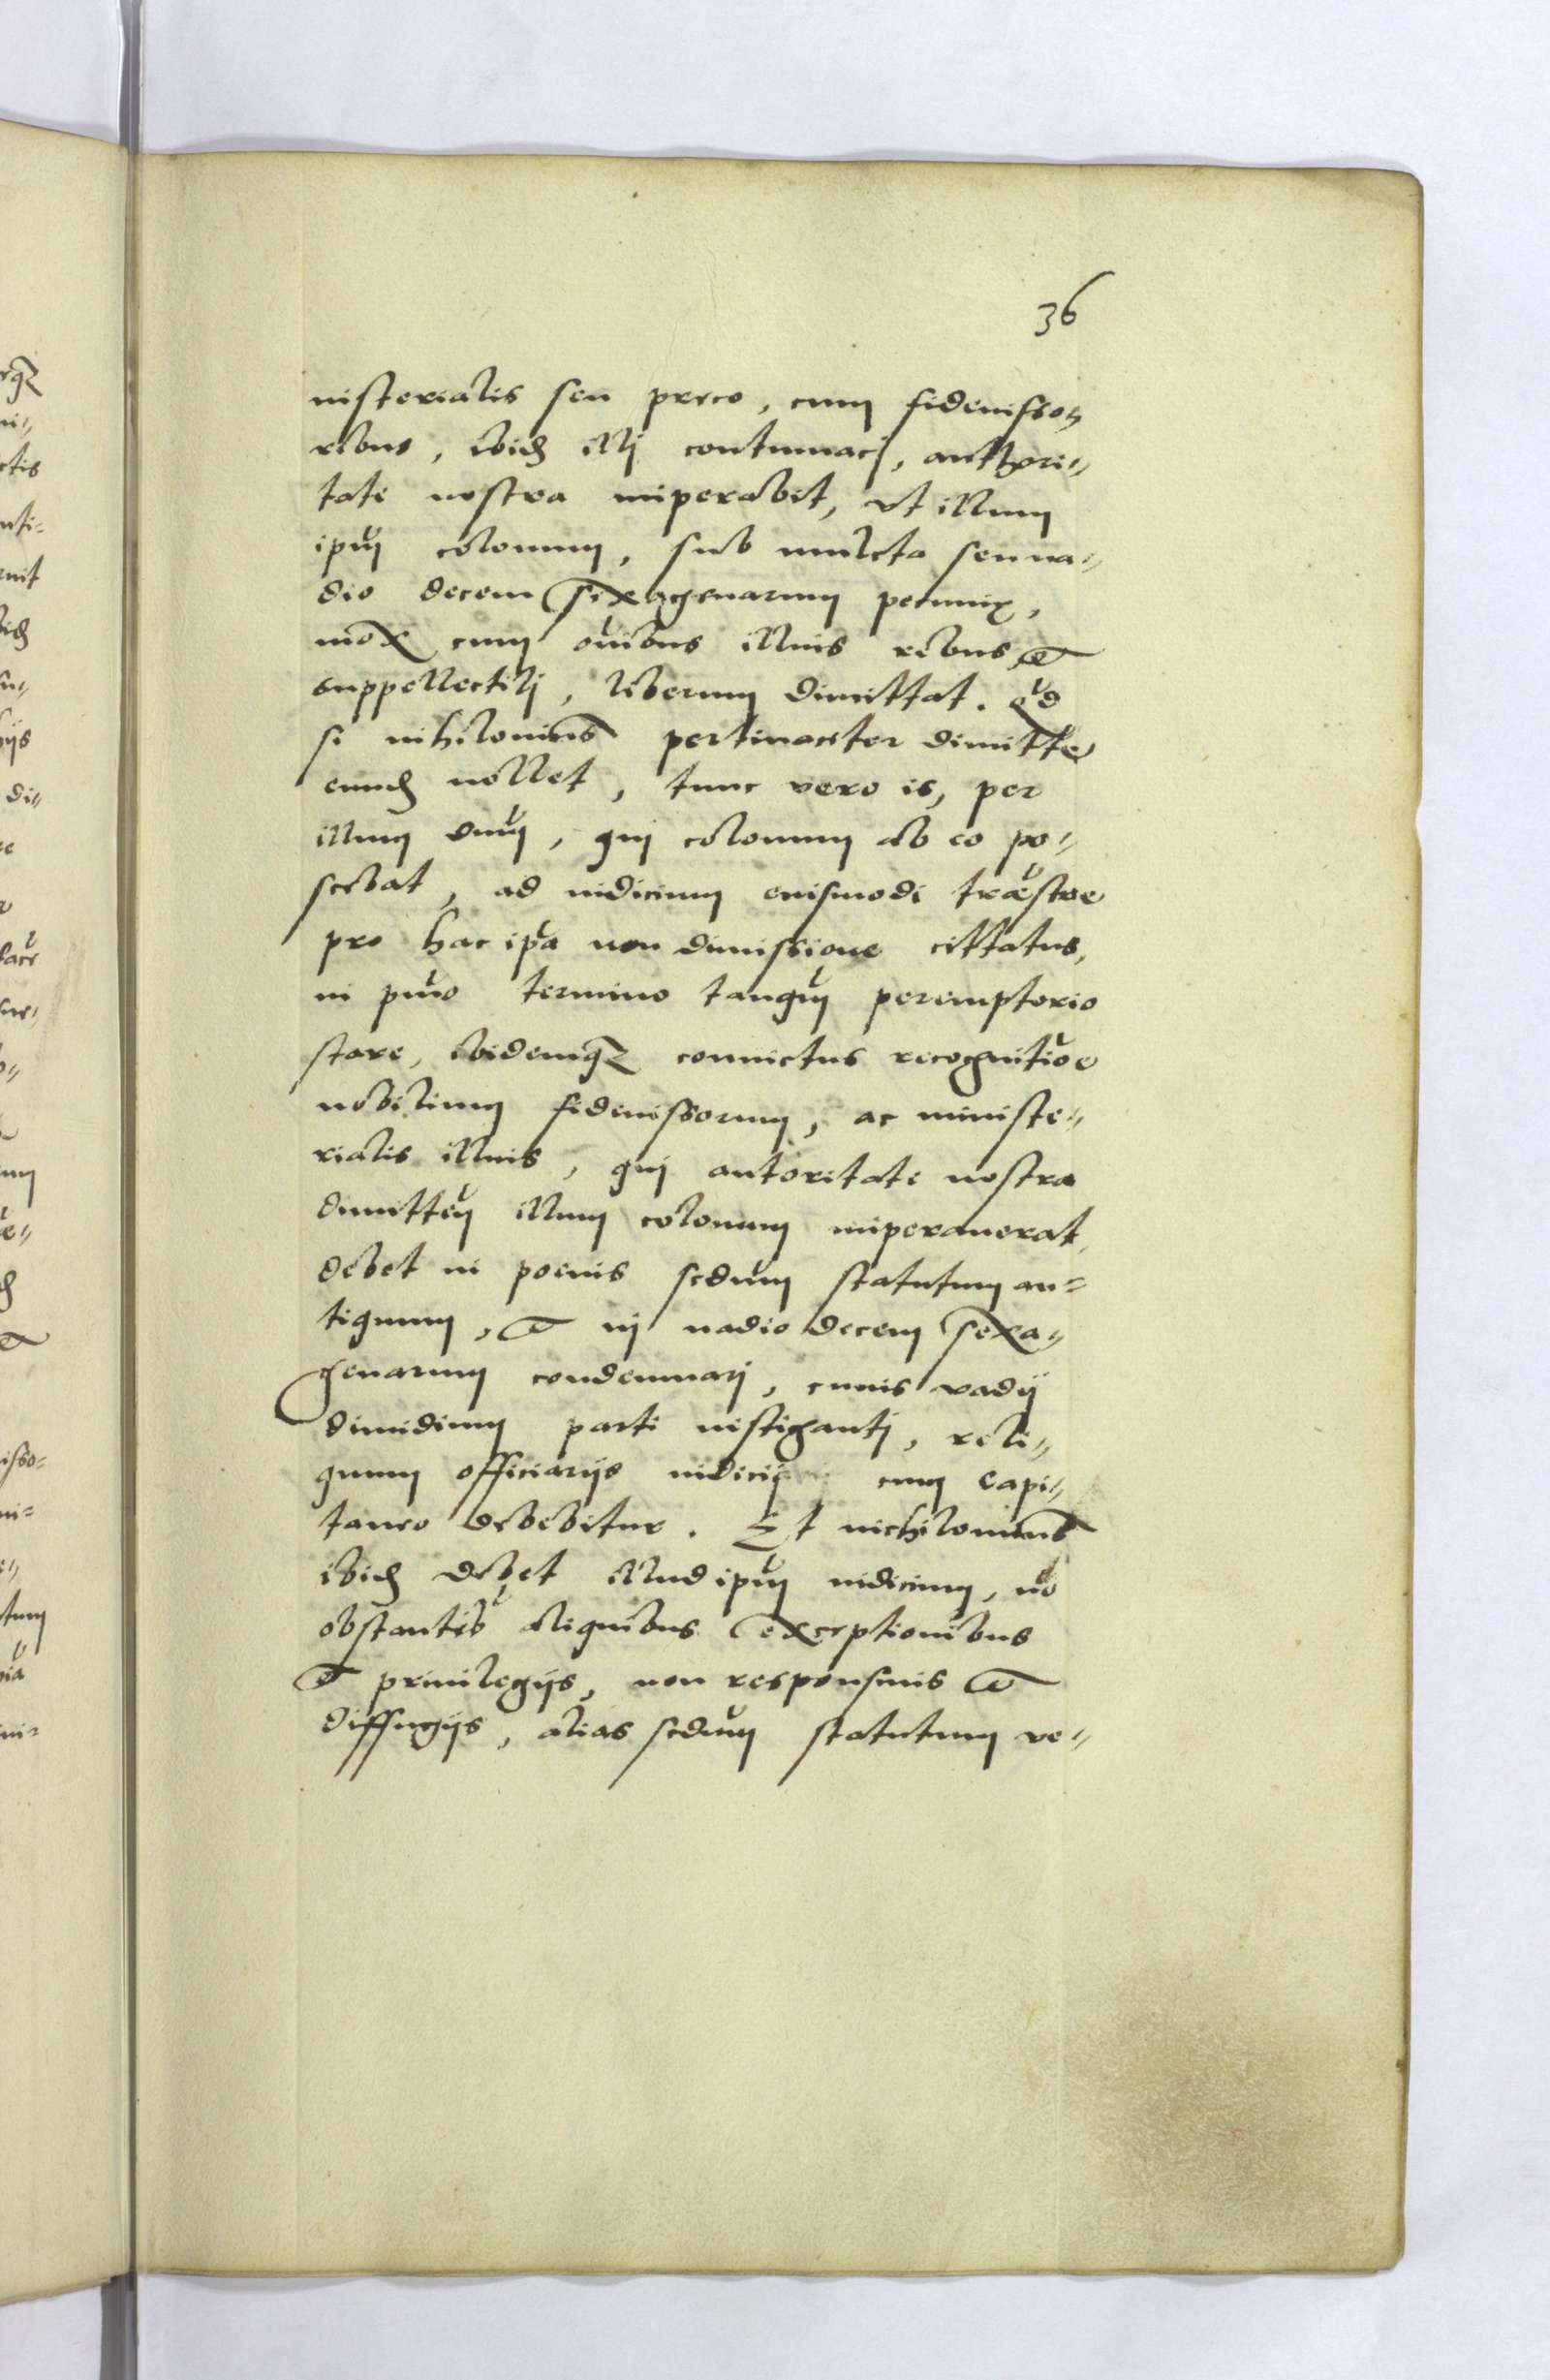 36
nisterialis seu preco, cum fideiusso„
ribus, ibid illj contumacj, authori„
tate nostra imperabit, vt illum
ipm colonum, sub mulcta seu va„
dio decem sexagenarum pecuniæ,
mox cum oibus illius rebus, et
suppellectilj, liberum dimittat. Qd
si nihilominus pertinaciter dimitte
eund nollet, tunc vero is, per
illum dnm, qui colonum ab eo po„
scebat, ad iudicium eiusmodi træstre
pro hac ipa non dimissione cittatus,
in pmo termino tanqm peremptorio
stare, ibidemq conuictus recognitioe
nobilium fideiussorum, ac ministe„
rialis illius, qui autoritate nostra
dimittej illum colonum imperauerat,
debet in poenis sedum statutum an=
tiquum, et in vadio decem sexa„
genarum condemnarj, cuius vadij
dimidium parti instigantj, reli„
quum officiarijs iudicij cum capi„
taneo debebitur. Et nichilominus
ibid debet illud ipm iudicium, no
obstantib aliquibus exceptionibus
et priuilegijs, non responsiuis et
diffugijs, alias sedum statutum ve„